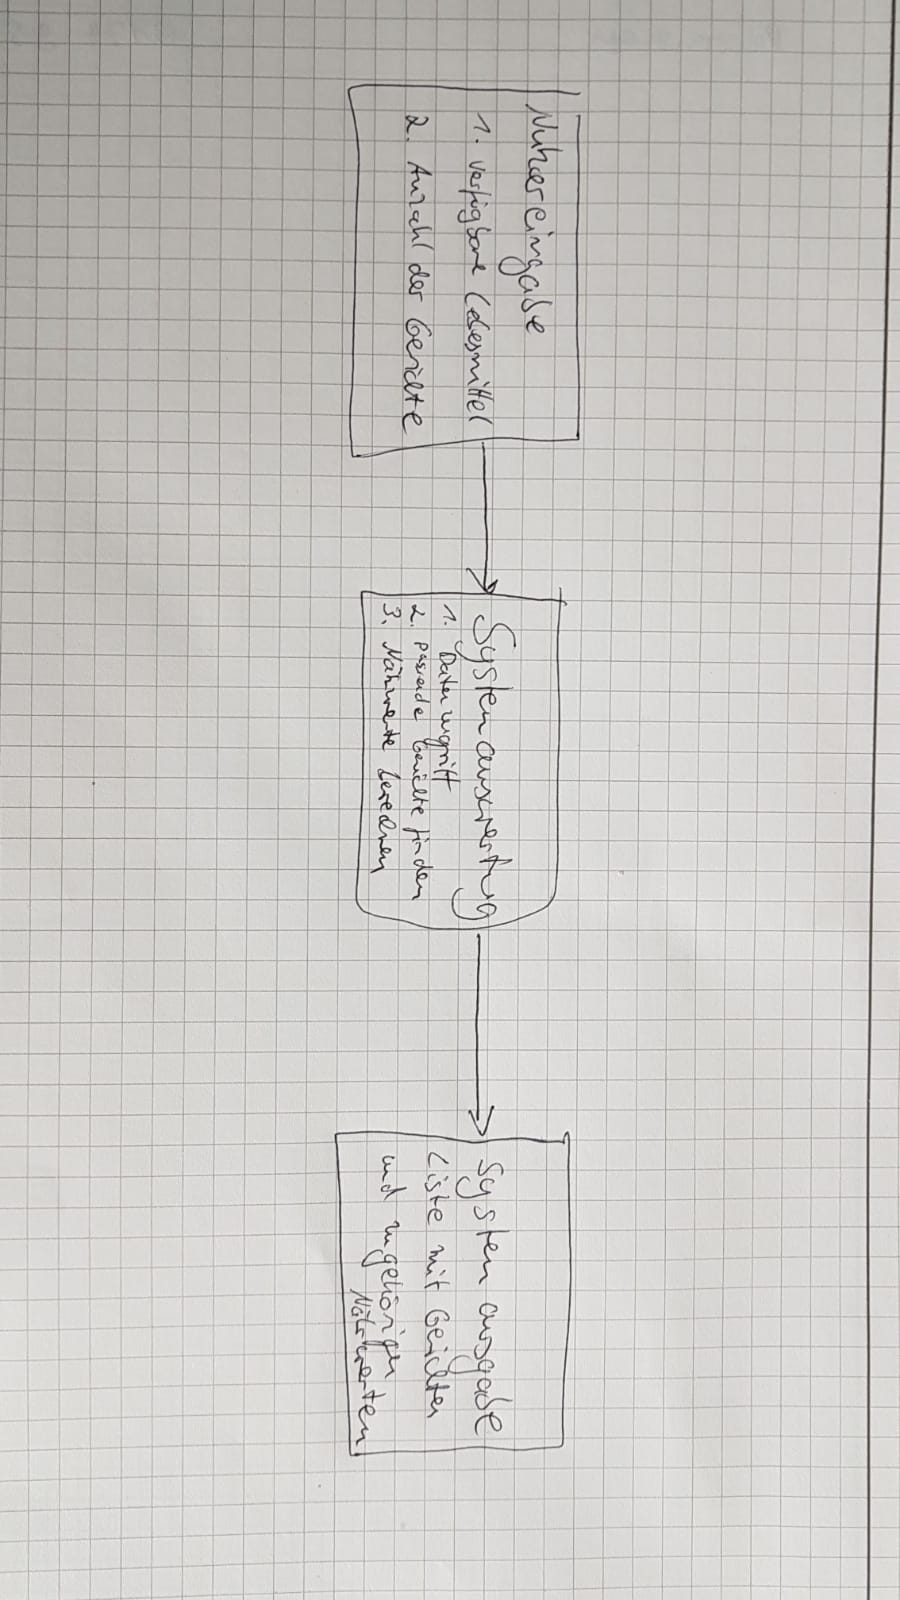 Nutzereingabe
1. verfügbare Lebesmittel
2. Anzahl der Gerichte
Systemauswertug
1. Datenzugriff
2. Passende Gerichte finden
3. Nährwerte berechnen
Systemausgabe
Liste mit Gerichten
und zugehörigen
Nährwerten